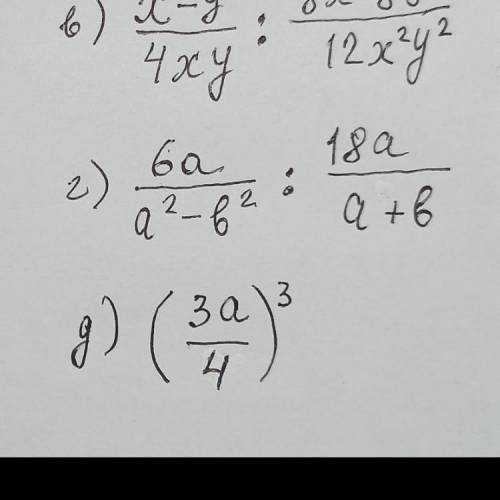 в) x-y/4xy : /12x²y²
г) 6a/a²-в² : 18a/a+в
д) (3a/4)³